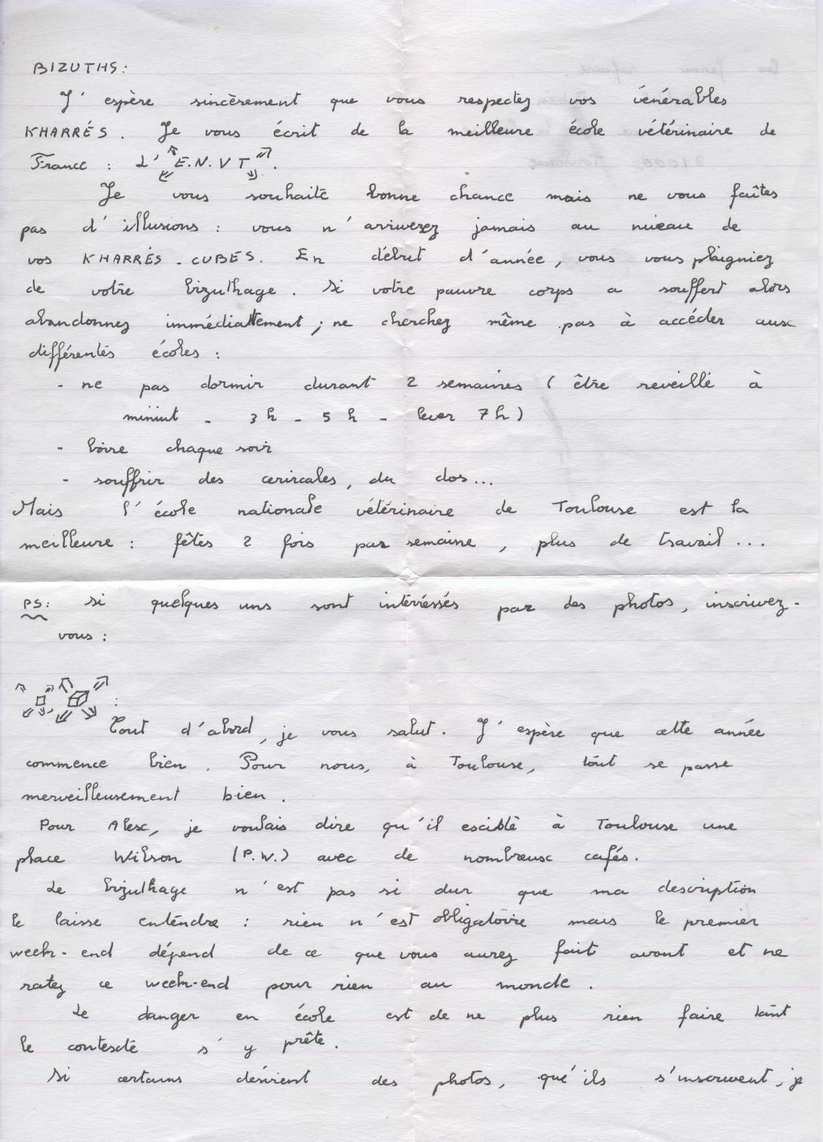 BIZUTHS :
J'espère sincèrement que vous respectez vos vénérables
KHARRÉS. Je vous écrit de la meilleure école vétérinaire de
France : L'E.N.V T.
Je vous souhaite bonne chance mais ne vous faîtes
pas d'illusions : vous n'arriverez jamais au niveau de
vos KHARRÉS - CUBES. En début d'année, vous vous plaigniez
de votre bizuthage. Si votre pauvre corps a souffert alors
abandonnez immédiatement ; ne cherchez même pas à accéder aux
différentes écoles :
- ne pas dormir durant 2 semaines ( être reveillé à
minuit - 3h - 5h - lever 7h )
- boire chaque soir
- souffrir des cervicales, du dos...
Mais l'école nationale vétérinaire de Toulouse est la
meilleure : fêtes 2 fois par semaine, plus de travail ...
PS: si quelques uns sont interéssés par des photos, inscrivez-
vous :
:
Tout d'abord, je vous salut. J'espère que cette année
commence bien. Pour nous, à Toulouse, tout se passe
merveilleusement bien.
Pour Alex, je voulais dire qu'il existe à Toulouse une
place Wilson (P.W.) avec de nombreux cafés.
Le bizuthage n'est pas si dur que ma description
le laisse entendre : rien n'est obligatoire mais le premier
week-end dépend de ce que vous aurez fait avant et ne
ratez ce week-end pour rien au monde.
Le danger en école est de ne plus rien faire tant
le contexte s'y prête.
Si certains désirent des photos, qu'ils s'inscrivent, je